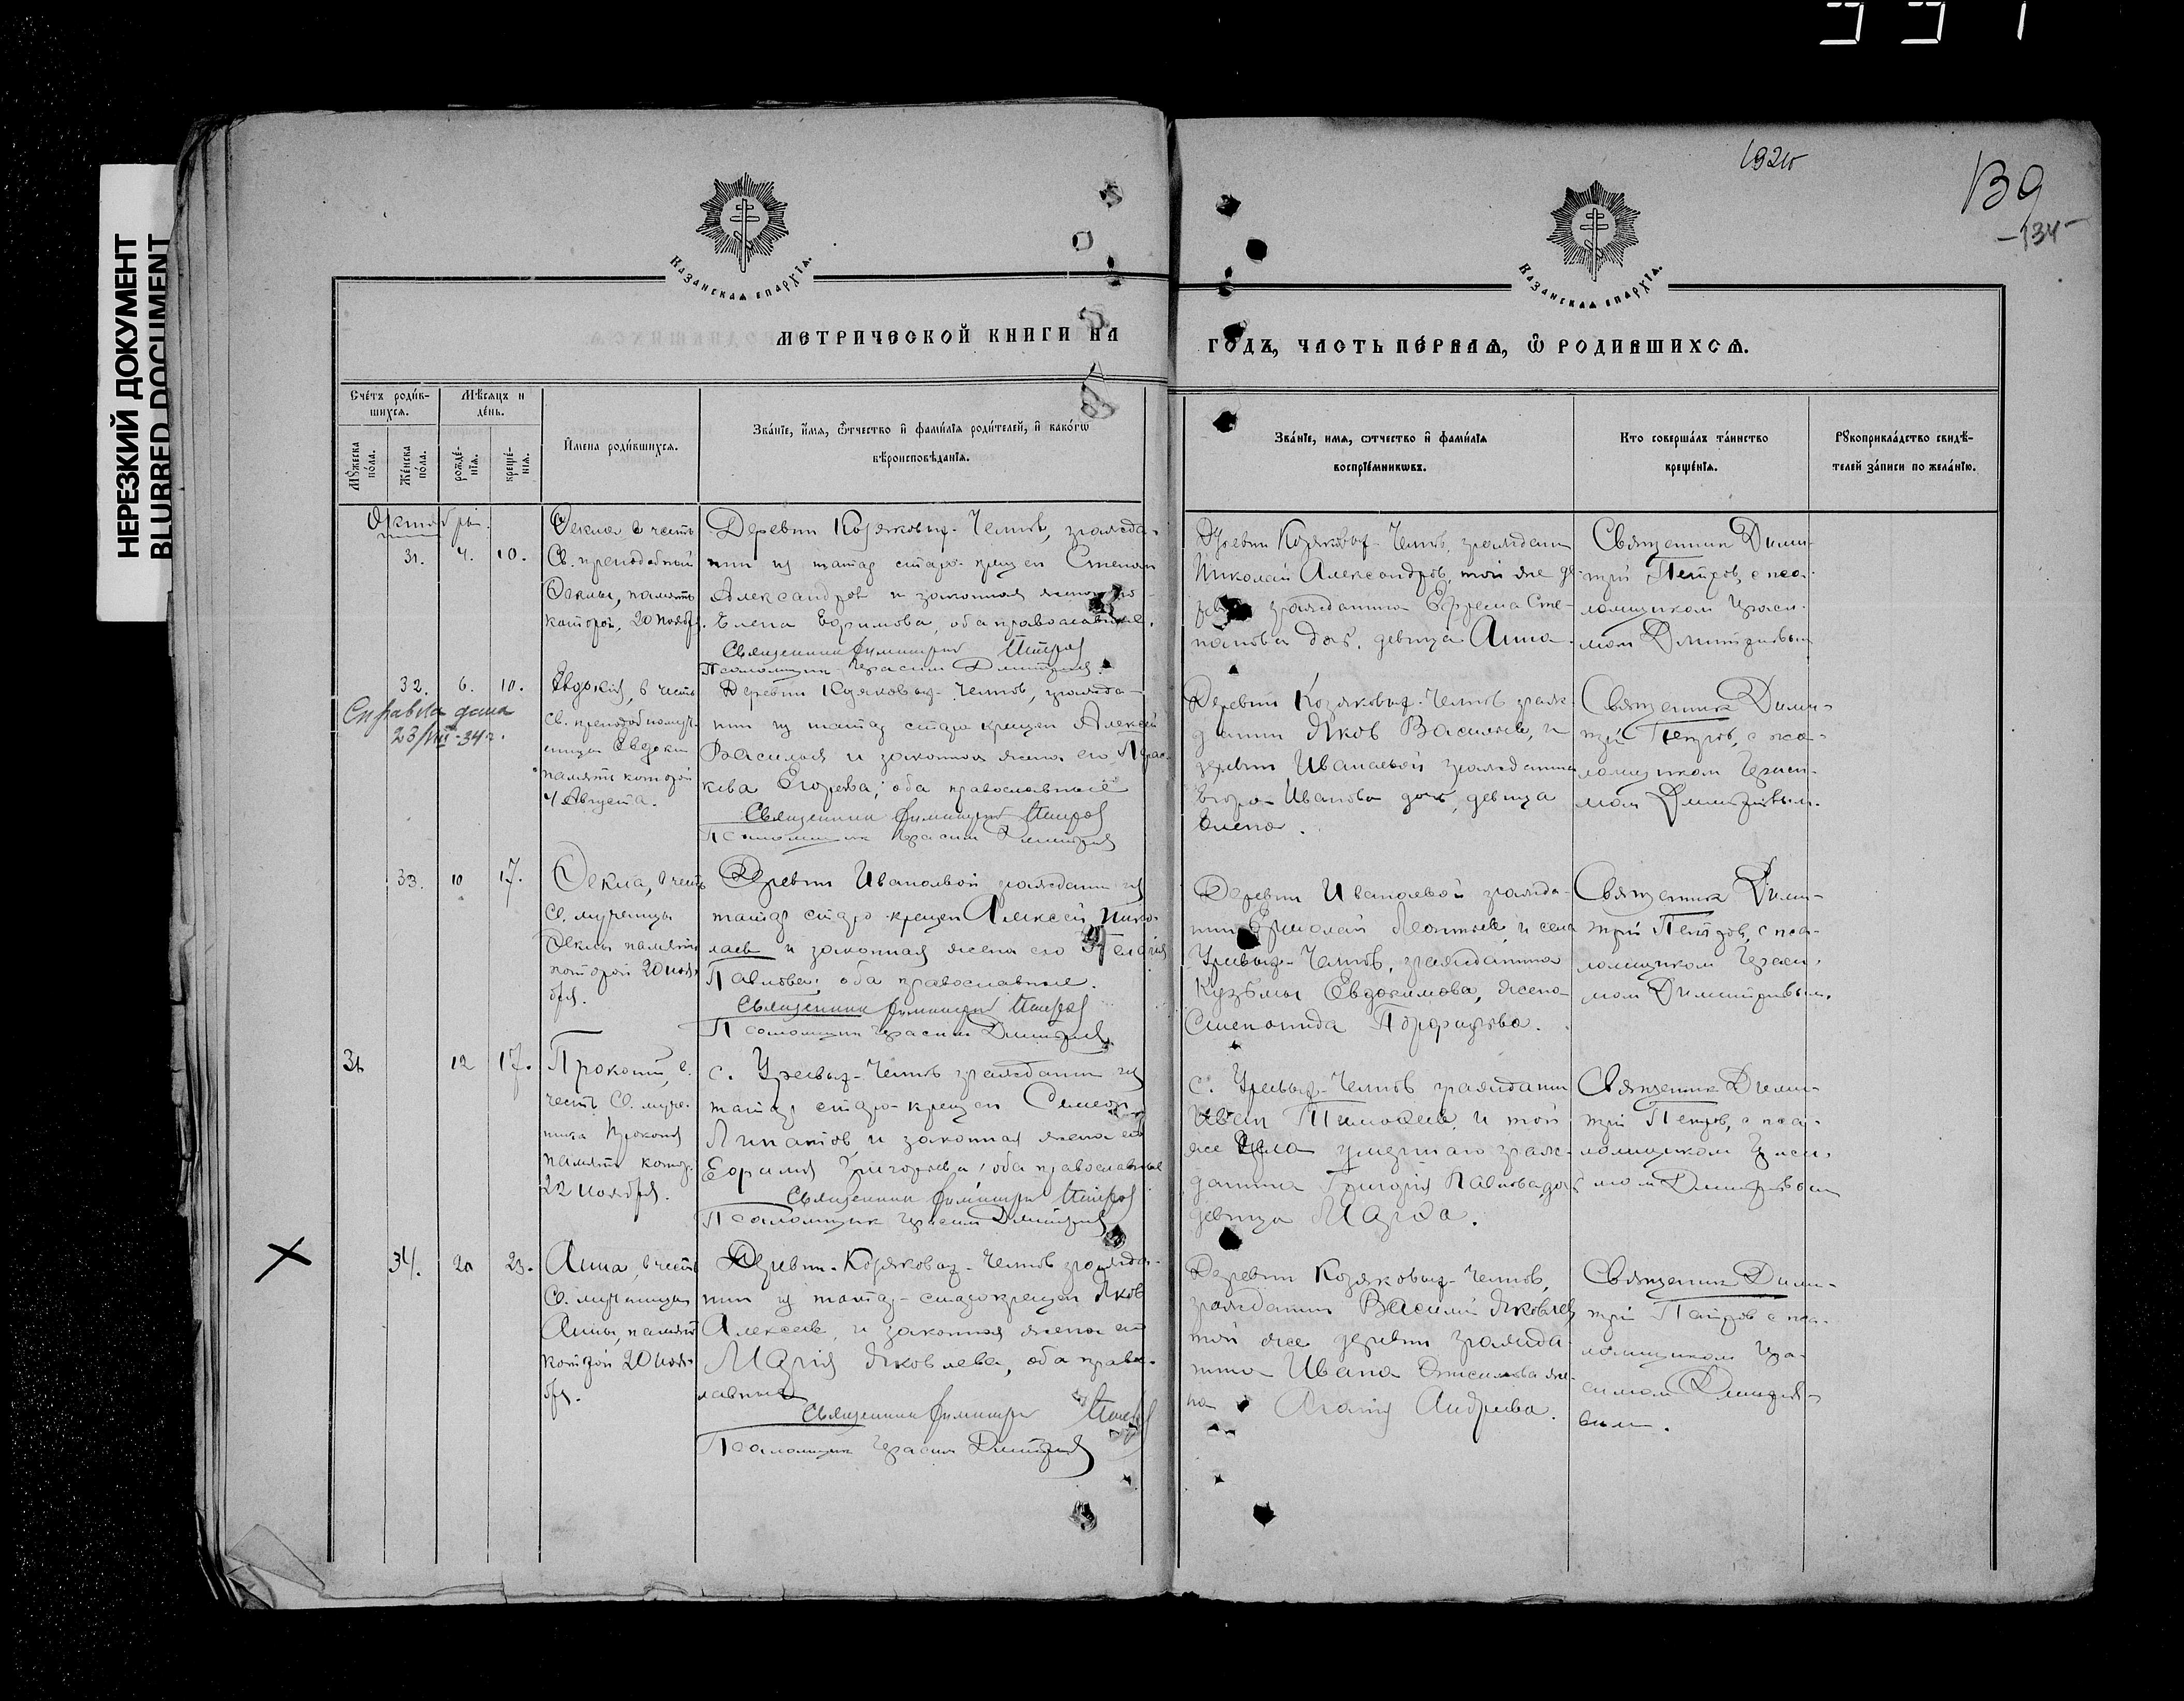 НЕРЕЗКИЙ ДОКУМЕНТ
BLURRED DOCUMENT
139
-134-
КАЗАНСКАЯ ЕПАРХІЯ.
КАЗАНСКАЯ ЕПАРХІЯ.
МЕТРИЧЕСКОЙ КНИГИ НА
ГОДЪ, ЧАСТЬ ПЕ́РВАЯ, Ѿ РОДИВШИХСЯ.
Счетъ роди́вшихся.
Мѣсяцъ и де́нь.
Мꙋжеска по́ла.
Же́нска по́ла.
рожде́нія.
креще́нія.
И҆мена роди́вшихся.
Зва́ніе, и҆́мя, ѻ҆́тчество и҆ фами́лія роди́телей, и҆ како́гѡ
вѣроисповѣ́данія.
Зва́ніе, имя, ѻтчество и҆ фами́лія
воспріе́мникѡвъ.
Кто соверша́лъ та́инство
креще́нія.
Рꙋкоприкла́дство свидѣ́-
телей за́писи по жела́нію.
Октября.
31. 4. 10.
Фекла в честь
Св. преподобный
Феклы, память
которой, 20 Ноябр.
Деревни Козяковых-Челнов, гражда-
нин из татар старо-крещен Степан
Александров и законная жена его
Елена Ефримова, оба православные.
Священник Димитрий Петров
Псаломщик Герасим Дмитриев.
Деревни Козяковых-Челнов, гражданин
Николай Александров, той же де-
гражданина Ефрема Сте-
панова доч. девица Анна.
Священник Дими-
трий Петров, с пса-
ломщиком Гераси-
мом Дмитриевым
32. 6. 10.
Справка дана
23/VIII-34г.
Евдокия, в честь
Св. преподобномуч-
еницы Евдокии
память которой
4 Августа.
Деревни Козяковых-Челнов, гражда-
нин из татар старо крещен Алексей
Васильев и законная жена его, Прас-
кева Егорова, оба православные
Священник Димитрий Петров
Псаломщик Герасим Дмитриев
Деревни Козяковых-Челнов граж-
данин Яков Васильев, и
деревни Иванаевой гражданина
Егора Иванова доч, девица
Елена.
Священник Дими-
трий Петров, с пса-
ломщиком Гераси-
мом Димитриевым.
33. 10 17.
Фекла, в честь
Св. мученицы
Феклы память
которой 20 ноя-
бря.
Деревни Иванаевой гражданин из
татар старо-крещен Алексей Нико-
лаев и законная жена его Пелагия
Павлова, оба православные.
Священник Димитрий Петров
Псаломщик Герасим Дмитриев
Деревни Иванаевой гражда-
нин Ермолай Леонтьев и села
Уревых-Челнов, гражданина
Кузьмы Евдокимова, жена
Степанида Порфирова.
Священник Дими-
трий Петров, с пса-
ломщиком Гераси-
мом Димитриевым.
12 17.
Прокопий, в
честь Св. муче-
ника Прокопия
память котор.
22 ноября.
с. Урывых-Челнов гражданин из
татар старо-крещен Симеон
Липатов и законная жена его
Ефимия Григорьева, оба православные
Священник Димитрий Петров
Псаломщик Герасим Дмитриев
с. Урывых-Челнов гражданин
Иван Тимофеев, и той
же села умершаго граж-
данина Григория Павлова, доч
девица Марфа.
Священник Дими-
трий Петров, с пса-
ломщиком Гераси-
мом Дмитриевым
34. 20 23.
Анна, в честь
Св. мученицы
Анны, память
которой 20 ноя-
бря.
Деревни-Козяковых-Челнов гражда-
нин из татар-старокрещен Яков
Алексеев, и законная жена его
Мария Яковлева, оба право-
славные
Священник Димитрий Петров
Псаломщик Герасим Дмитриев
Деревни Козяковых-Челнов,
гражданин Василий Яковлев
той же деревни гражда-
нина Ивана Анисимова же-
на Агапия Андреева.
Священник Дими-
трий Петров с пса-
ломщиком Гера-
симом Дмитрие-
вым.